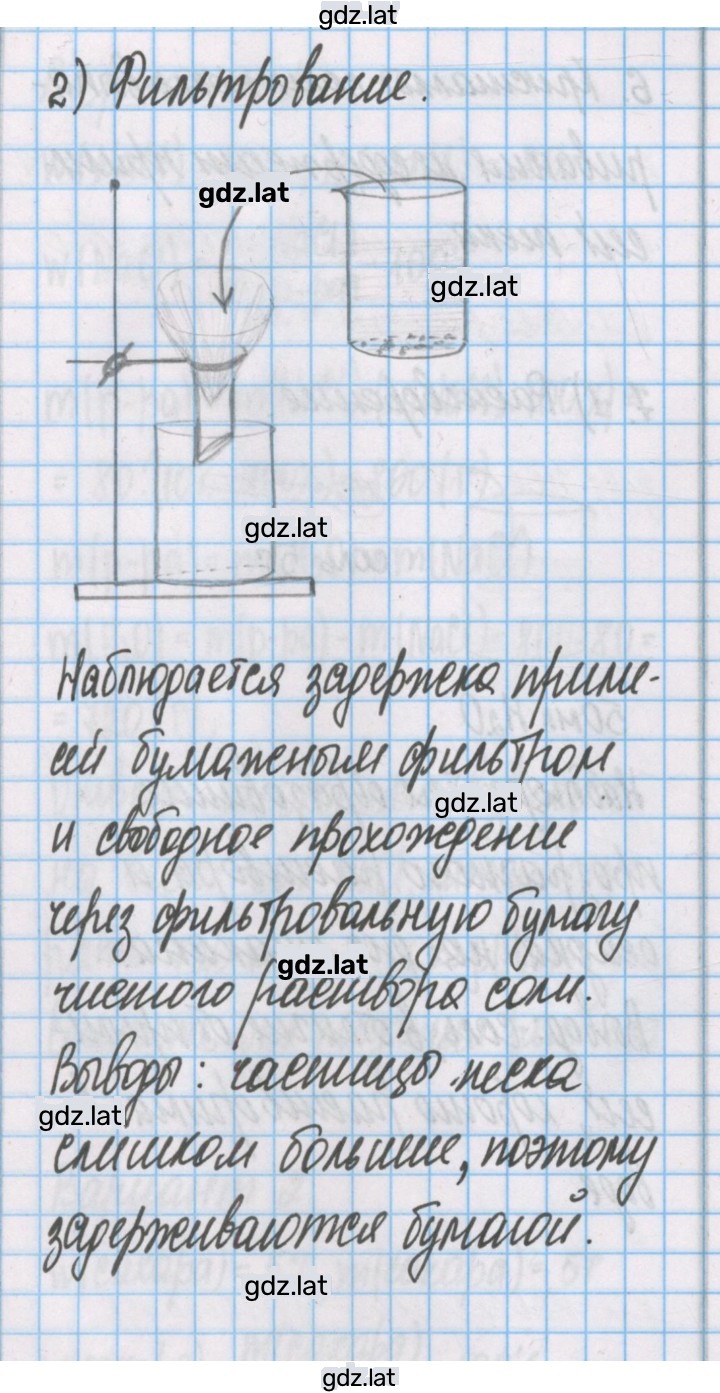 gdz.lat
2) Фильтрование.
gdz.lat
gdz.lat
gdz.lat
Наблюдается задержка приме-
сей бумажным фильтром
gdz.lat
и свободное прохождение
через фильтровальную бумагу
gdz.lat
чистого раствора соли.
Выводы: частицы песка
gdz.lat
слишком большие, поэтому
задерживаются бумагой.
gdz.lat
gdz.lat